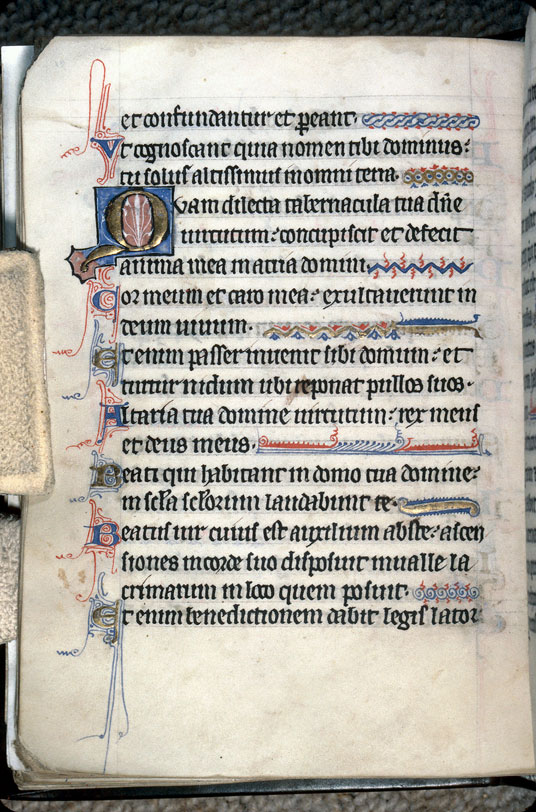 et confundantur et p̲eant.
Ut cognoscant quia nomen tibi dominus:
tu solus altissimus in omni terra.
Quam dilecta tabernacula tua dn̄e
uirtutum: concupiscit et defecit
anima mea in atria domini.
Cor meum et caro mea: exultauerunt in
deum uiuum.
Etenim passer inuenit sibi domum: et
turtur nidum ubi reponat pullos suos.
Altaria tua domine uirtutum: rex meus
et deus meus.
Beati qui habitant in domo tua domine:
in sc̄la sc̄lorum laudabunt te.
Beatus uir cuius est auxilium abs te: ascen
siones in corde suo disposuit in ualle la
crimarum in loco quem posuit.
Etenim benedictionem dabit legis lator